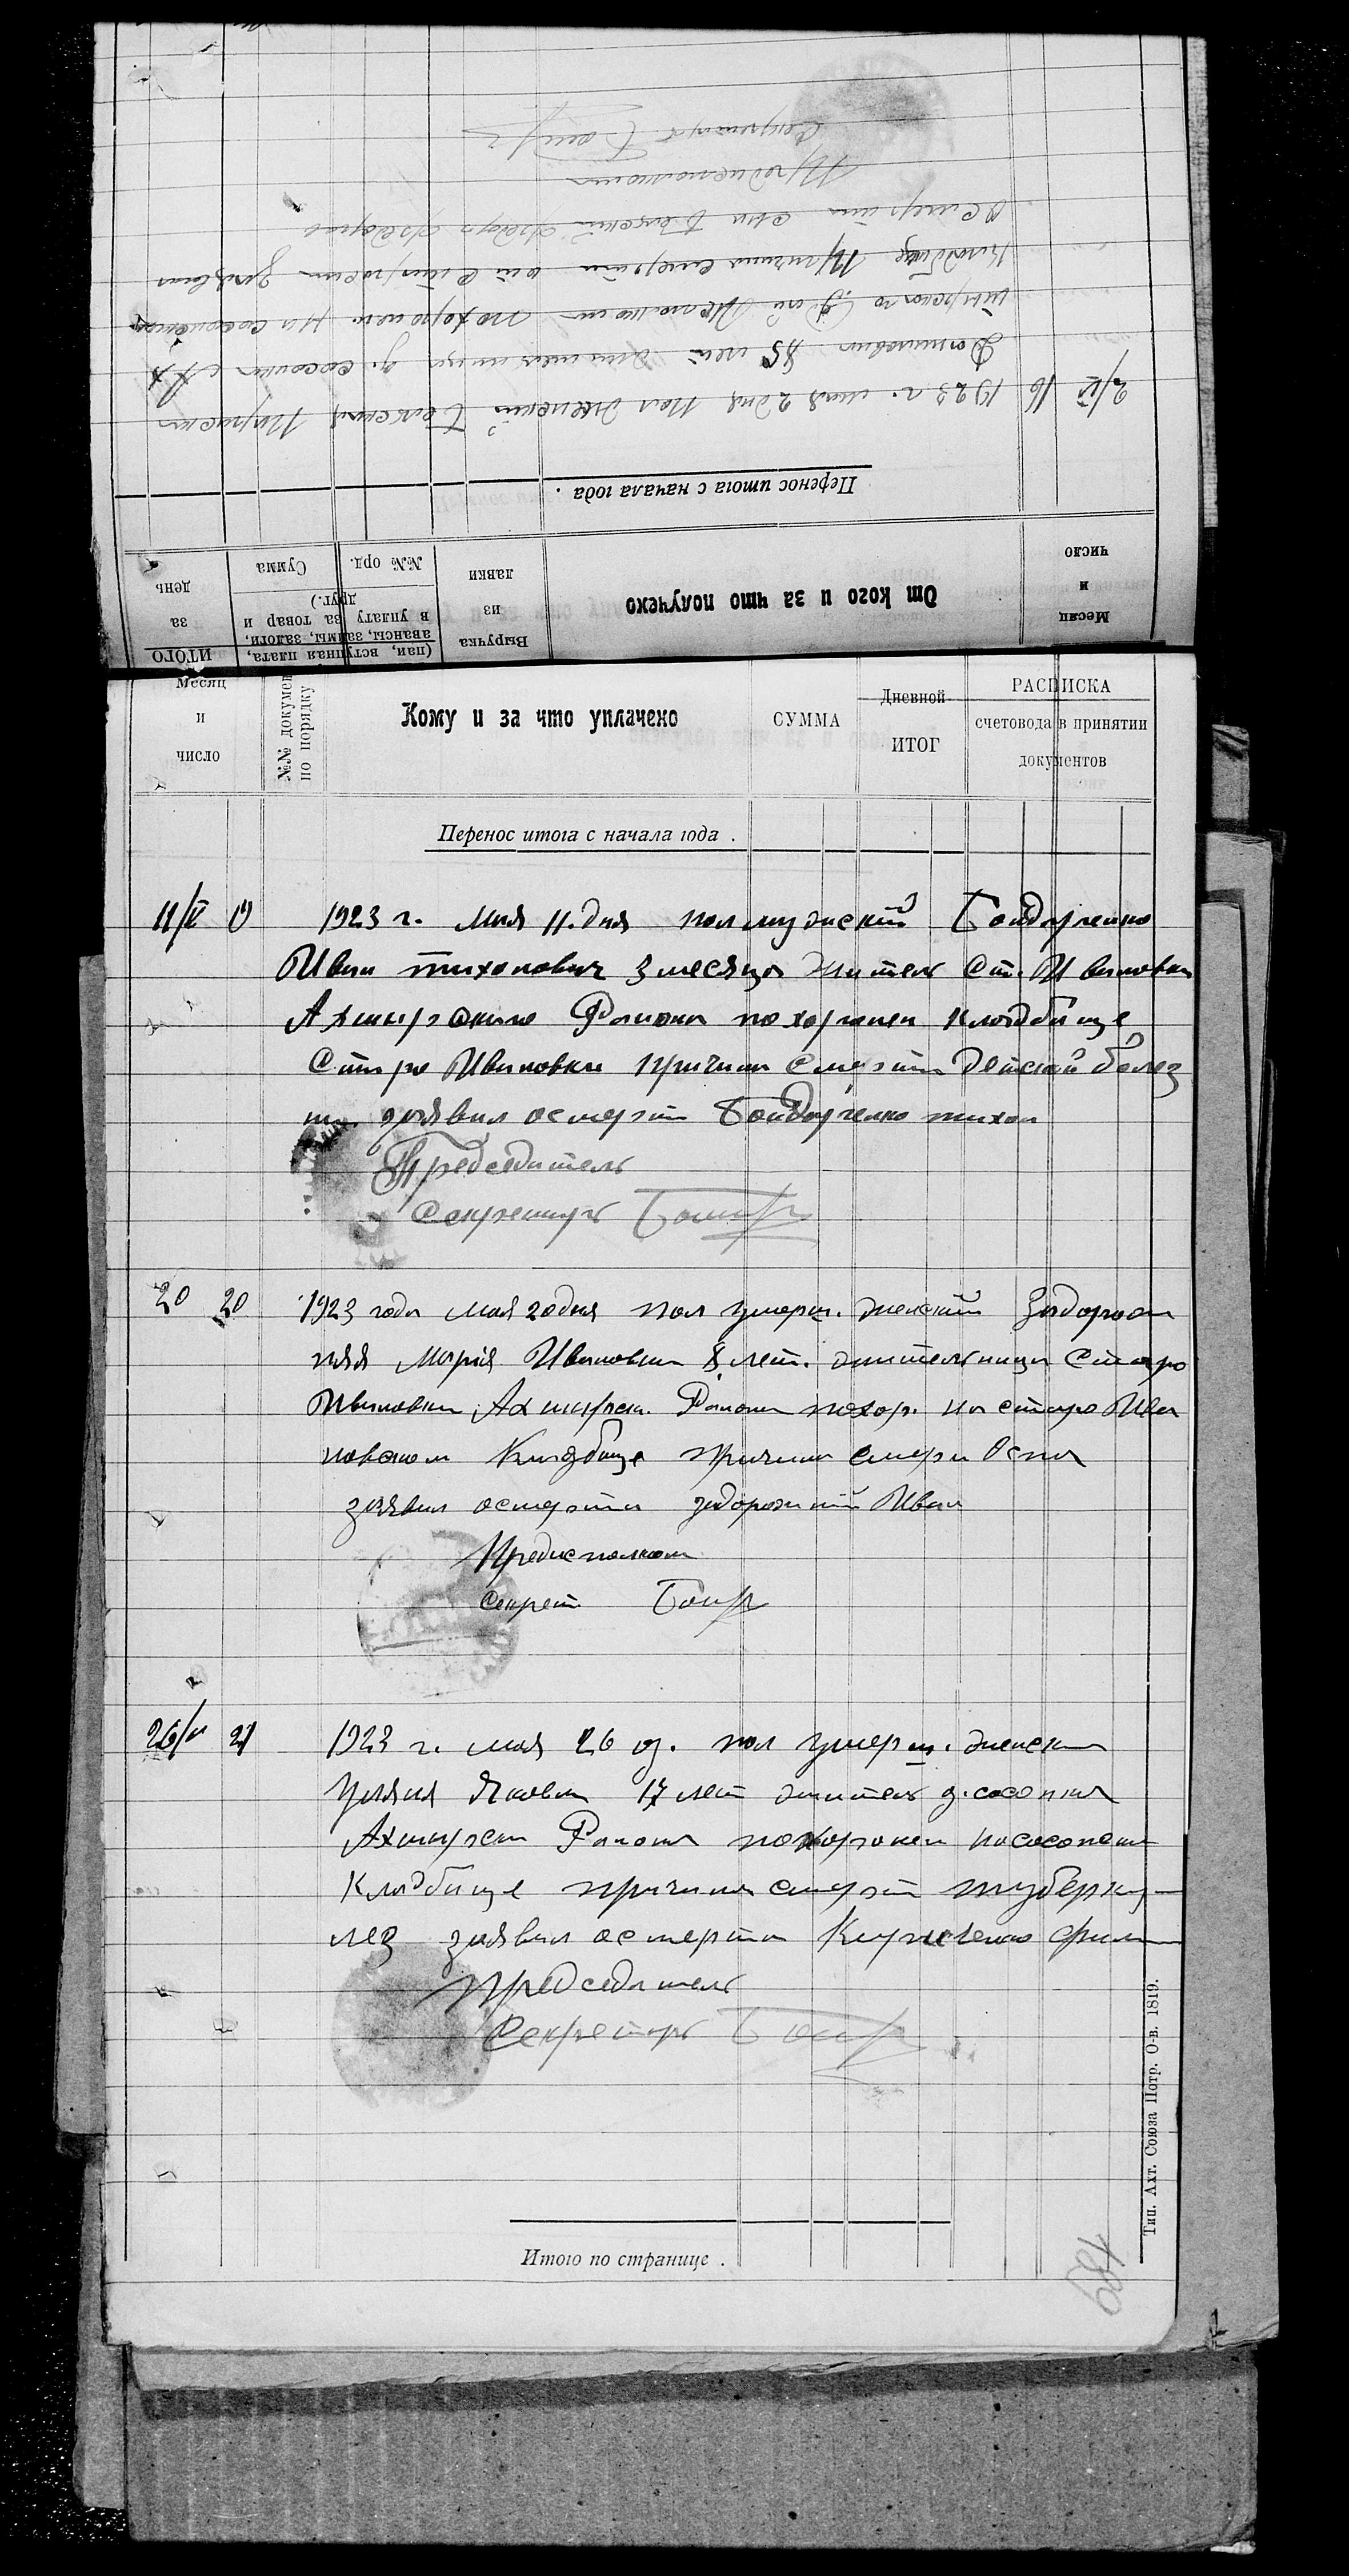 2/V 16 1923 г. мая 2 дня Пол женский
85 лет жительница д. сосонка Ах
тырского похоронен на сосонском
Кладбище Причина смерти от старости заявил
о смерти
Предисполком
Секретарь
Перенос итога с начала года .
Месяц и число
От кого и за что получено
Выручка из лавки
(паи, вступная плата, авансы, займы, залоги, в уплату за товар и друг.)
№№ орд. Сумма
ИТОГО за день
Месяц и число
№№ докумен по порядку
Кому и за что уплачено
СУММА
Дневной ИТОГ
РАСПИСКА счетовода в принятии документов
Перенос итога с начала года .
11/V 19 1923 г. мая 11. дня пол мужский Бондаренко
Иван тихонович 3 месяца житель Ст. Ивановки
Ахтырского Района похоронен кладбище
Старо Ивановки причина смерти Детской болез
ни. заявил о смерти Бондаренко тихон
Председатель
Секретарь
20 20 1923 года мая 20 дня пол умерш. женский Задорож
няя Марія Ивановна 8 лет. жительница Старо
Ивановки, Ахтырск. Района похор. на старо Ива
новском Кладбище причина смерти Оспа
заявил о смерти задорожний Иван
Предисполком
Секрет.
26/V 21 1923 г. мая 26 д. пол умерш. женски
17 лет житель д. сосонка
Ахтырск Района похоронен на сосонском
Кладбище причина смерти туберку-
лез заявил о смерти
Председатель
Секретарь
Итого по странице .
Тип. Ахт. Союза Потр. О-в. 1819.